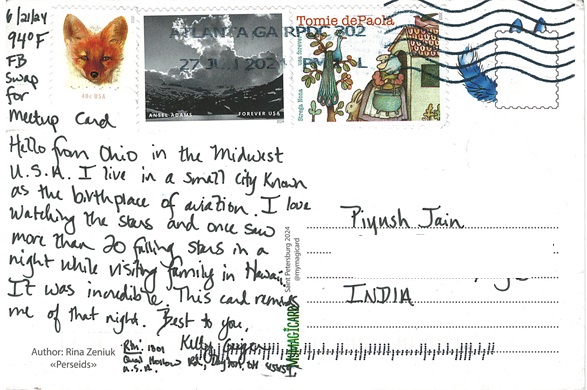 6/21/24
94°F
FB
Swap
for
meetup card
40c USA
ANSEL ADAMS
FOREVER USA
Tomie dePaola
Strega Nona
USA FOREVER
ATLANTA GA RPDC 302
27 JUN 2024 PM L
Hello from Ohio in the Midwest
U.S.A. I live in a small city known
as the birthplace of aviation. I love
watching the stars and once saw
more than 20 falling stars in a
night while visiting family in Hawaii.
It was incredible. This card reminds
me of that night. Best to you,
Kelly
Rtn: 1801
Hollow Rd, Dayton, OH
U.S.A.
Author: Rina Zeniuk
«Perseids»
Saint Petersburg 2024
@mymagicard
MYMAGICARD
Piyush Jain
INDIA